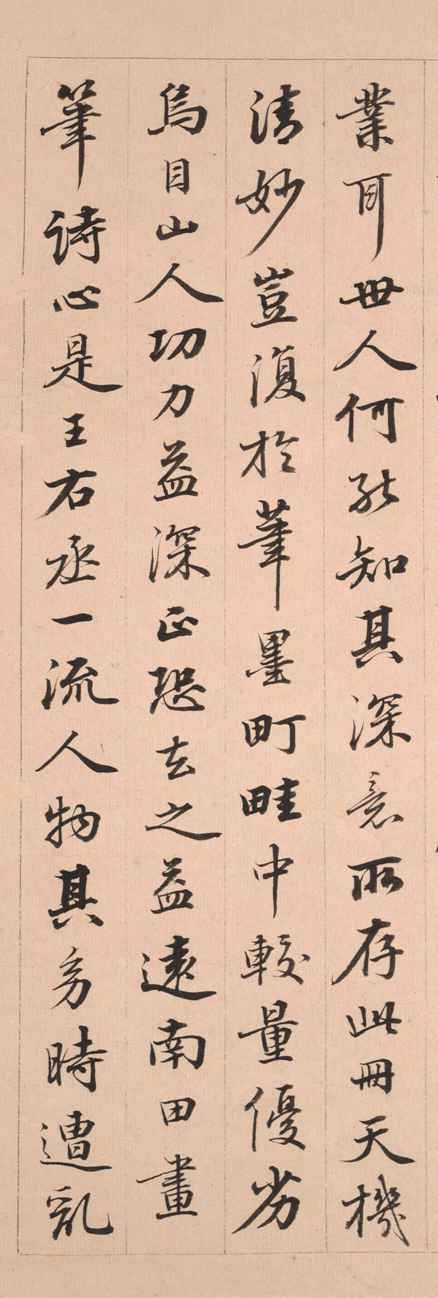 業耳世人何能知其深意所存此冊天機
清妙豈復於筆墨町畦中較量優劣
烏目山人功力益深正恐去之益遠南田畫
筆詩心是王右丞一流人物其身時遭亂